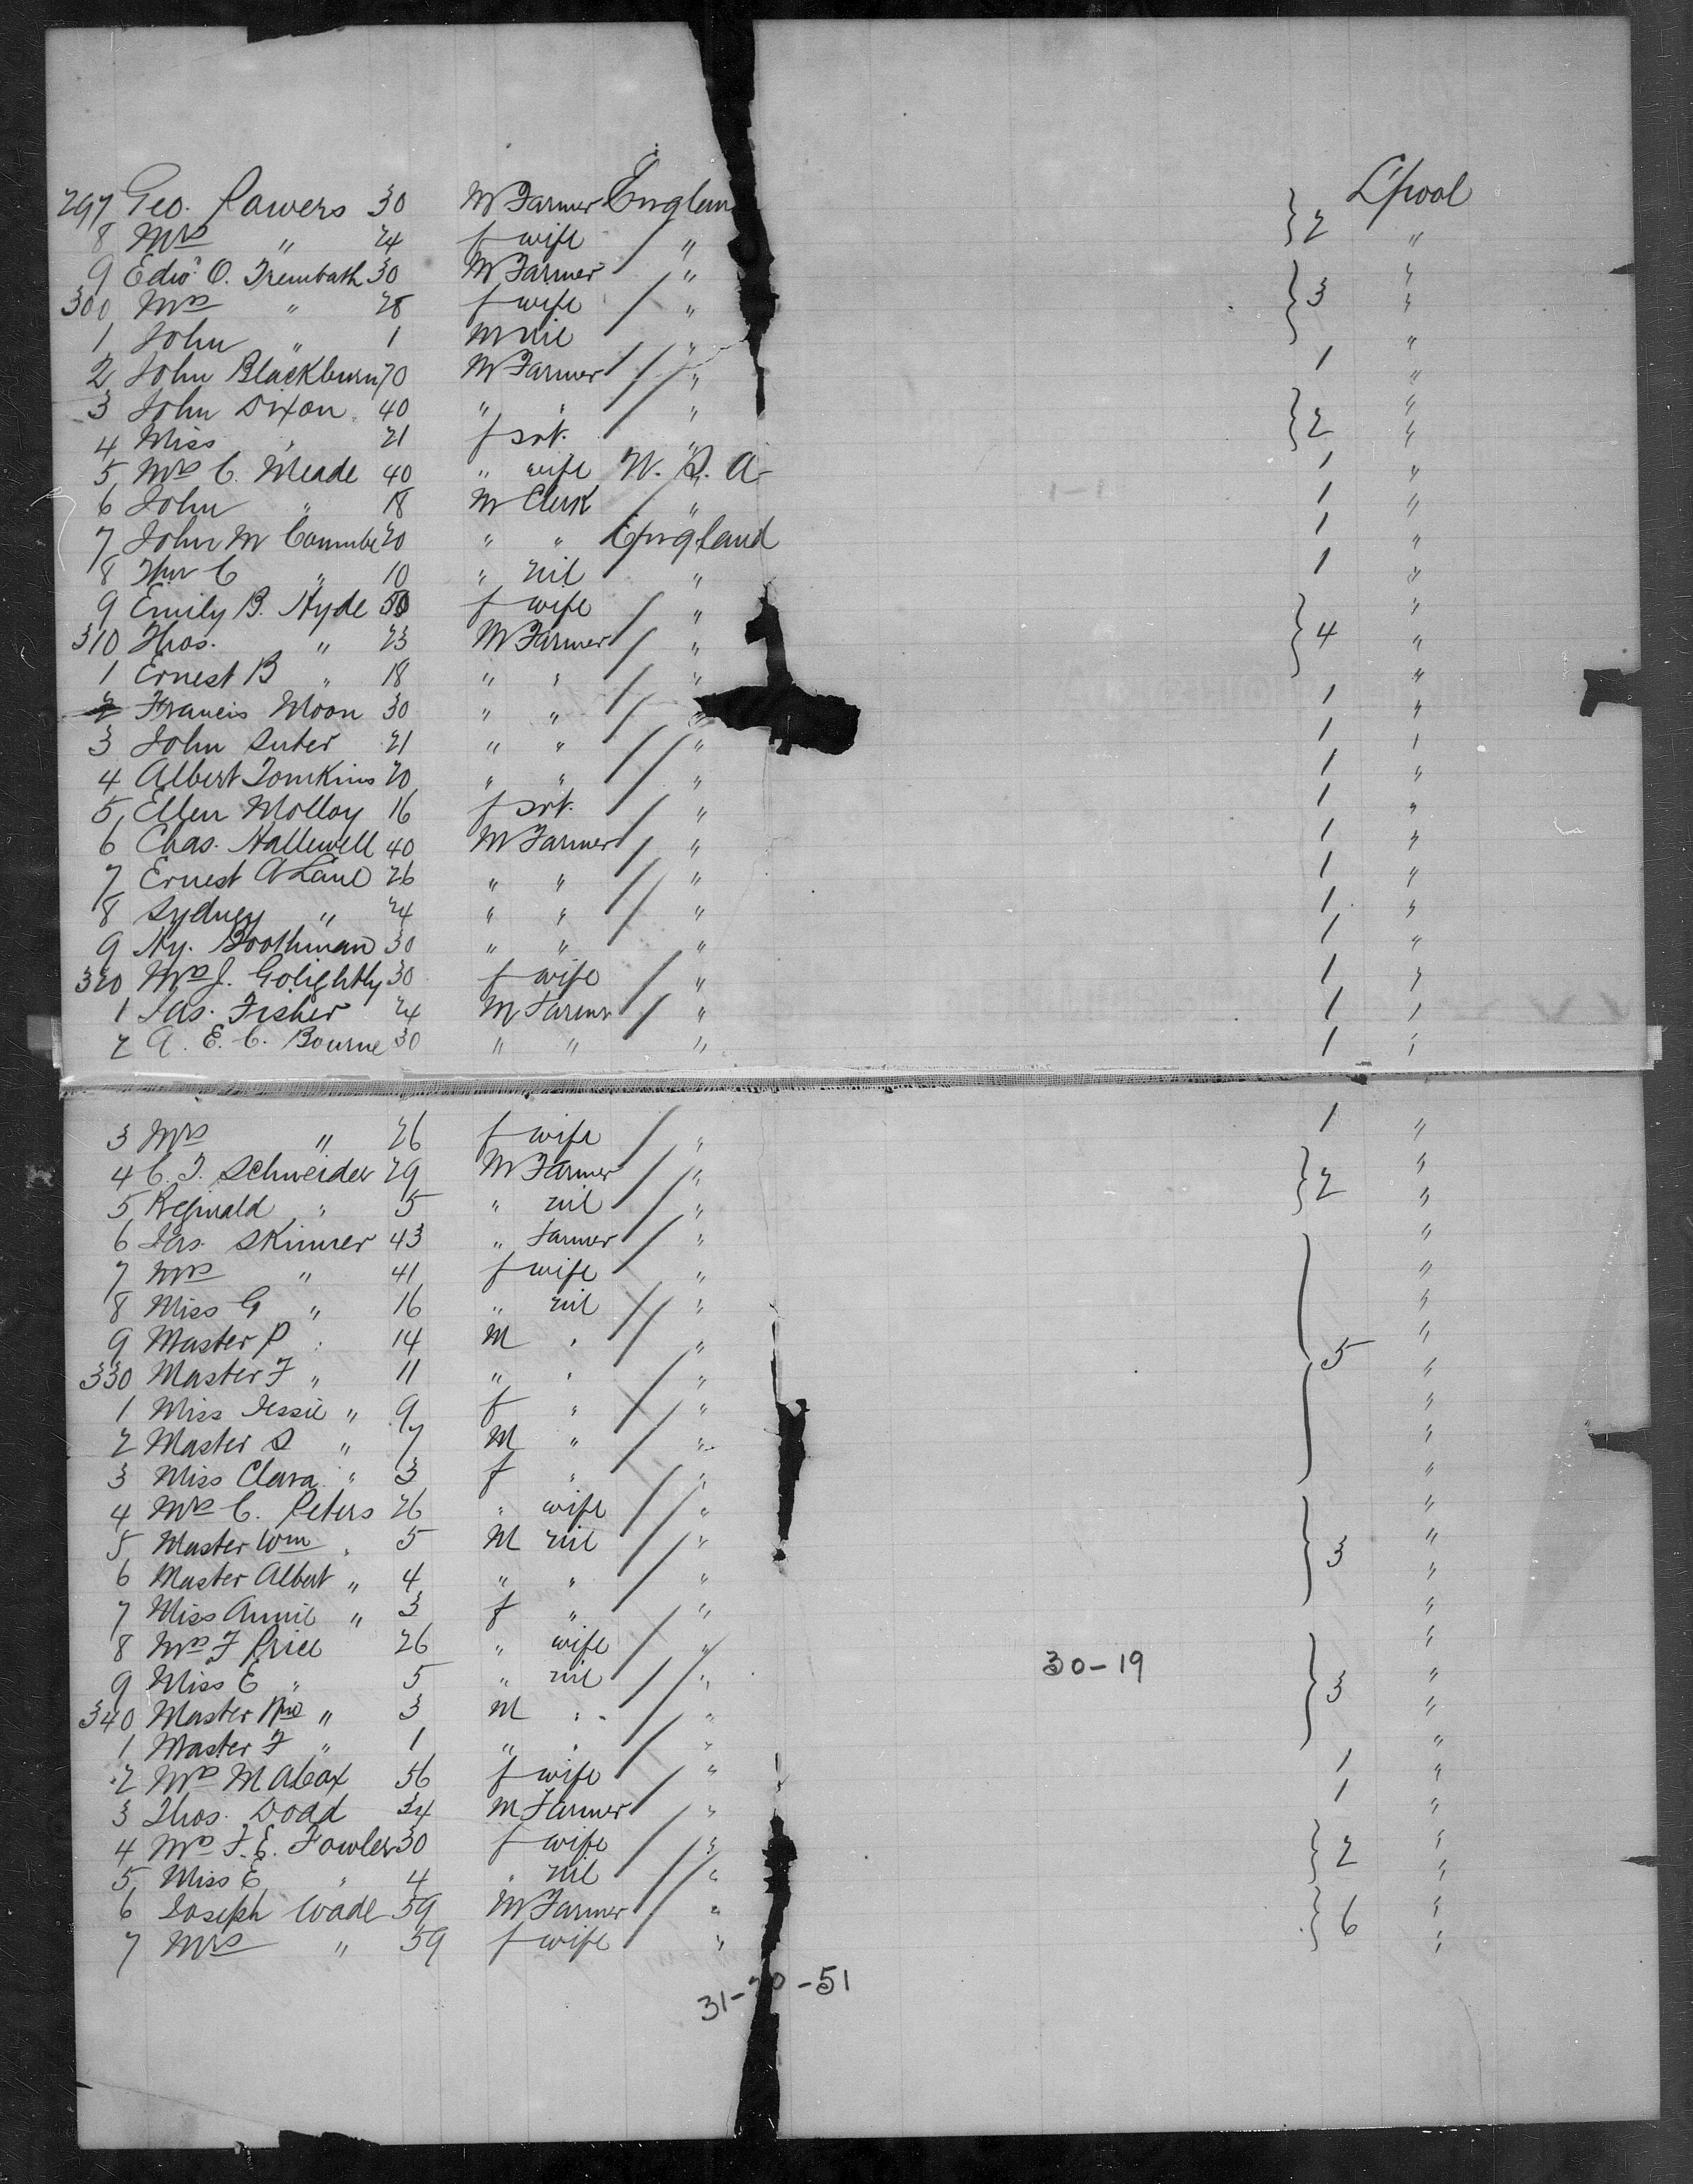 297 Geo. Powers 30 M Farmer England } 2 L'pool
8 Mrs " 24 f wife " "
9 Edwd O. Trembath 30 M Farmer " } 3 "
300 Mrs " 28 f wife " "
1 John " 1 M nil " "
2 John Blackburn 70 M Farmer " 1 "
3 John Dixon 40 " " " } 2 "
4 Miss " 21 f svt. " "
5 Mrs C. Meade 40 " wife U. S. A. 1 "
6 John " 18 M Clerk " 1 "
7 John M 20 " " England 1 "
8 C " 10 " nil " 1 "
9 Emily B. Hyde 50 f wife " } 4 "
310 Thos. " 23 M Farmer " "
1 Ernest B " 18 " " " "
2 Francis Moon 30 " " " 1 "
3 John Suter 21 " " " 1 "
4 Albert Tomkins 20 " " " 1 "
5 Ellen Molloy 16 f svt. " 1 "
6 Chas. Hallewell 40 M Farmer " 1 "
7 Ernest A Lane 26 " " " 1 "
8 Sydney " 24 " " " 1 "
9 Hy. Boothman 30 " " " 1 "
320 Mrs J. Golightly 30 f wife " 1 "
1 Jas. Fisher 24 M Farmer " 1 "
2 A. E. C. Bourne 30 " " " 1 "
3 Mrs " 26 f wife " 1 "
4 C. T. Schneider 29 M Farmer " } 2 "
5 Reginald " 5 " nil " "
6 Jas. Skinner 43 " Farmer " } 5 "
7 Mrs " 41 f wife " "
8 Miss G " 16 " nil " "
9 Master P " 14 M " " "
330 Master F " 11 " " " "
1 Miss Jessie " 9 f " " "
2 Master S " 7 M " " "
3 Miss Clara " 3 f " " "
4 Mrs C. Peters 26 " wife " } 3 "
5 Master Wm " 5 M nil " "
6 Master Albert " 4 " " " "
7 Miss Annie " 3 f " " "
8 Mrs F Price 26 " wife " } 3 "
9 Miss E " 5 " nil " 30-19 "
340 Master " 3 M " " "
1 Master F " 1 " " " "
2 Mrs M A Cox 56 f wife " 1 "
3 Thos. Dodd 34 M Farmer " 1 "
4 Mrs F. E. Fowler 30 f wife " } 2 "
5 Miss E " 4 " nil " "
6 Joseph Wade 59 M Farmer " } 6 "
7 Mrs " 59 f wife " "
31-20-51